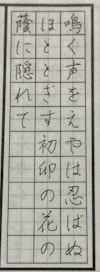 鳴く声をえやは忍はぬ
ほととぎす初卯の花の
蔭に隠れて